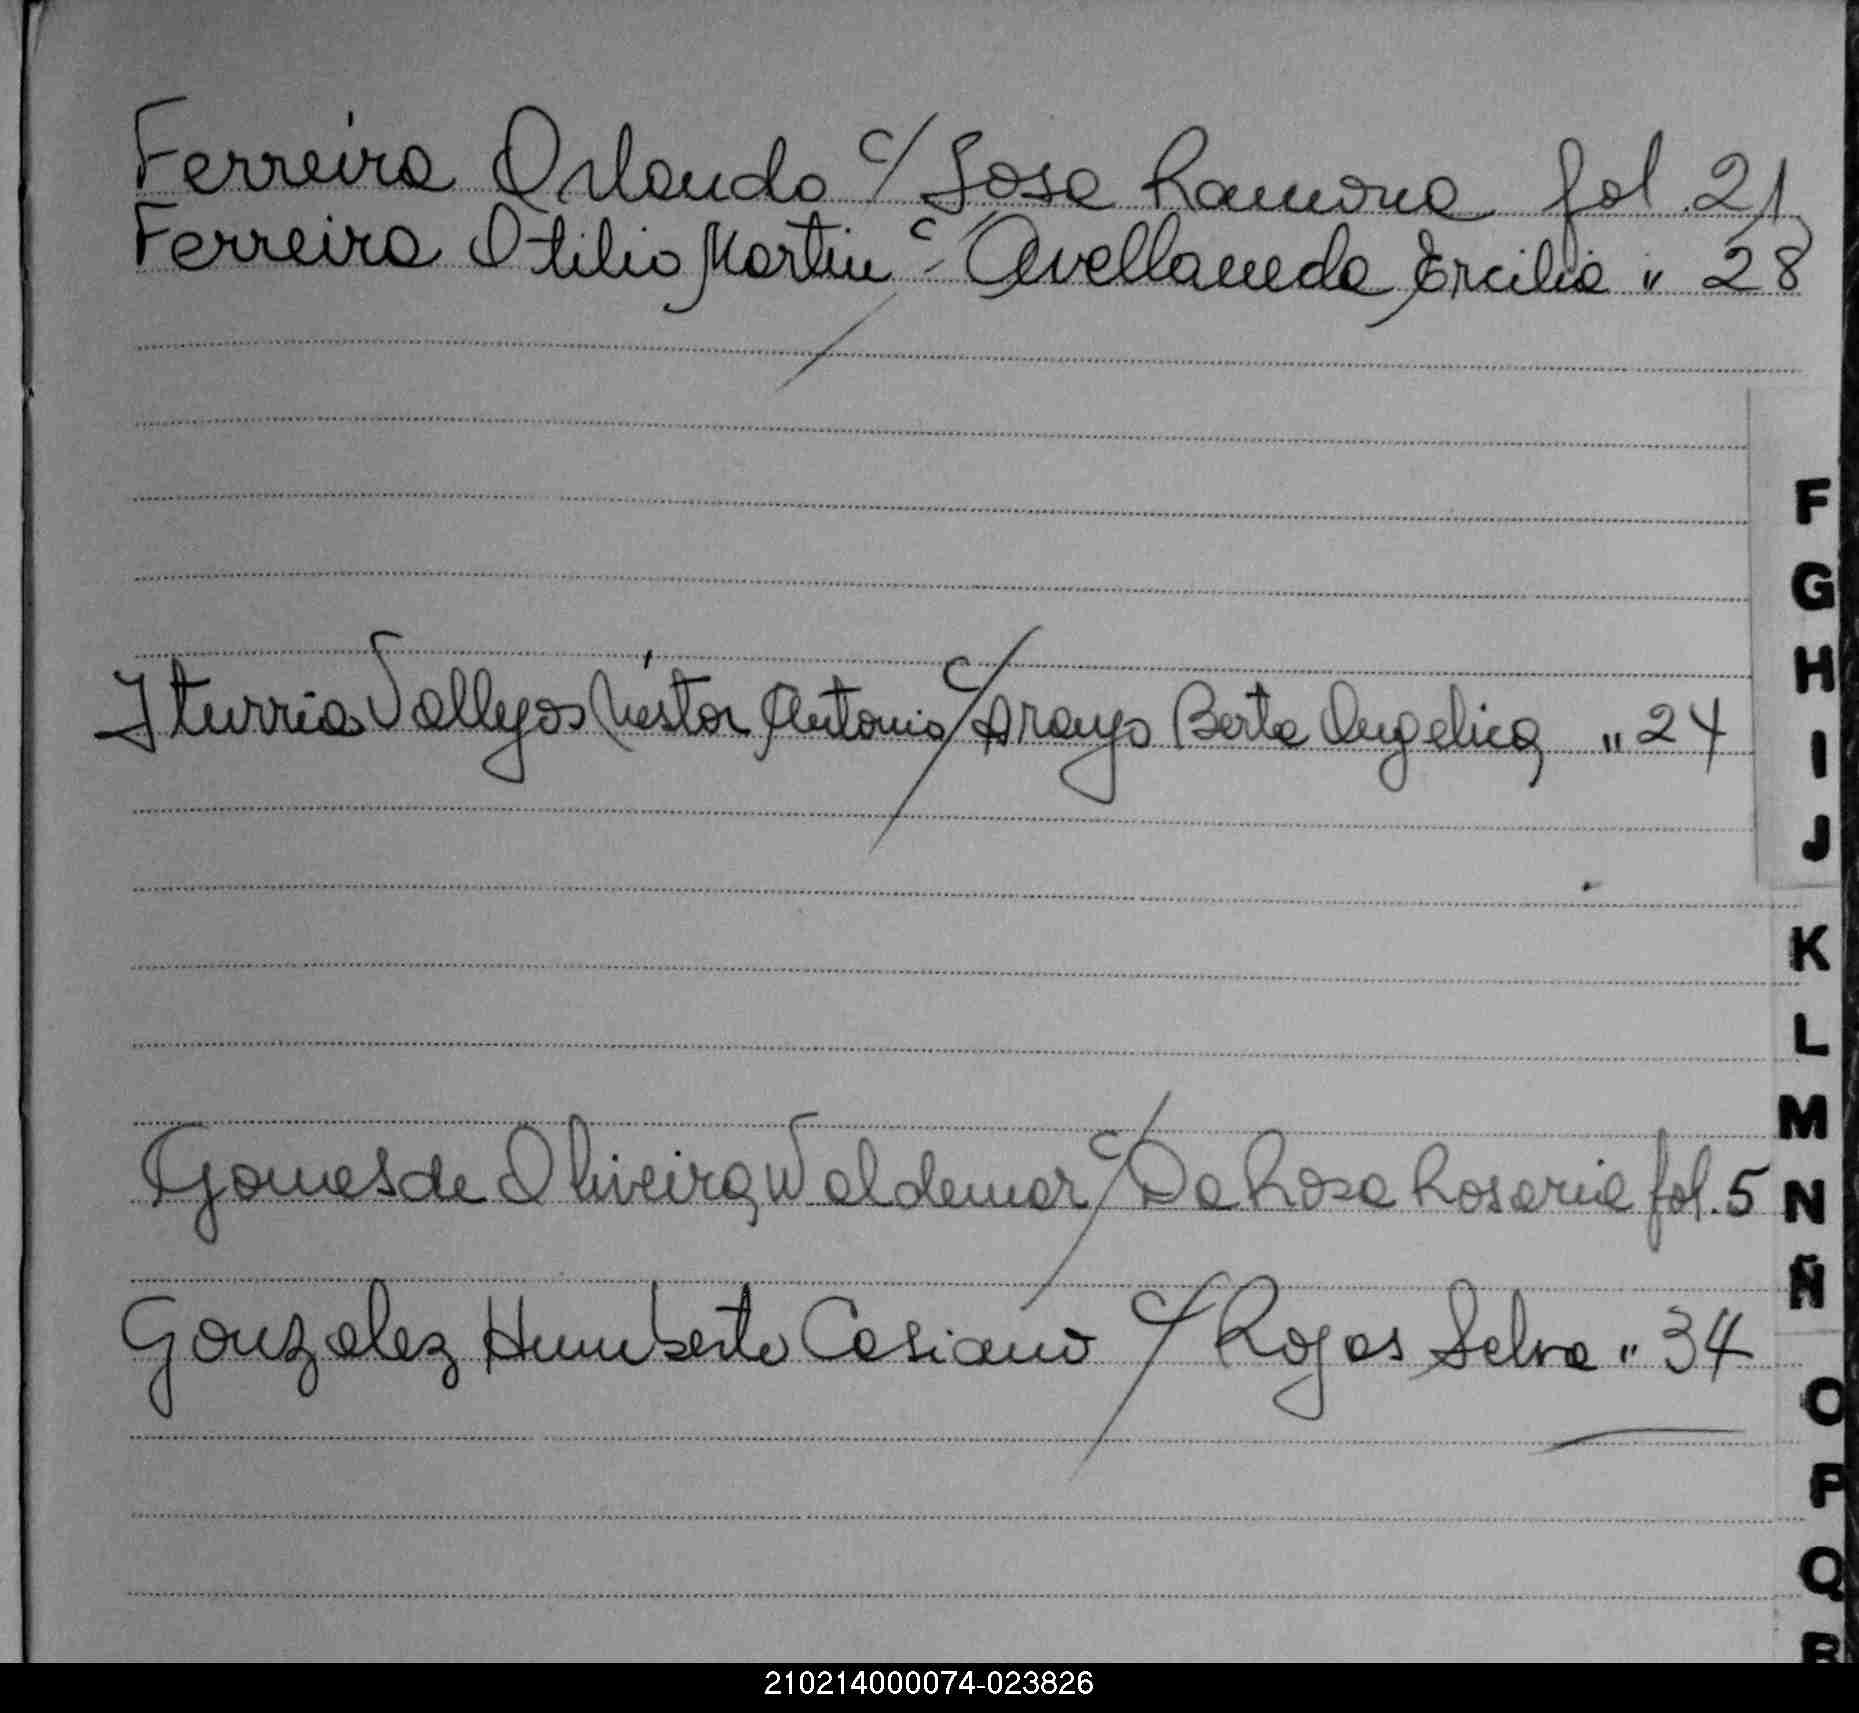 Ferreira Orlando c/ Sosa Ramona fol. 21
Ferreira Otilio Martin c/ Avellaneda, Ercilia " 28
F
G
H
Iturria Vallejos Néstor Antonio c/ Araujo Berta Angelica " 24
I
J
K
L
M
Gomes de Oliveira, Waldemar c/ Da Rosa Rosaria fol. 5
N
Ñ
Gonzalez Humberto Casiano c/ Rojas Selva " 34
O
P
Q
R
210214000074-023826